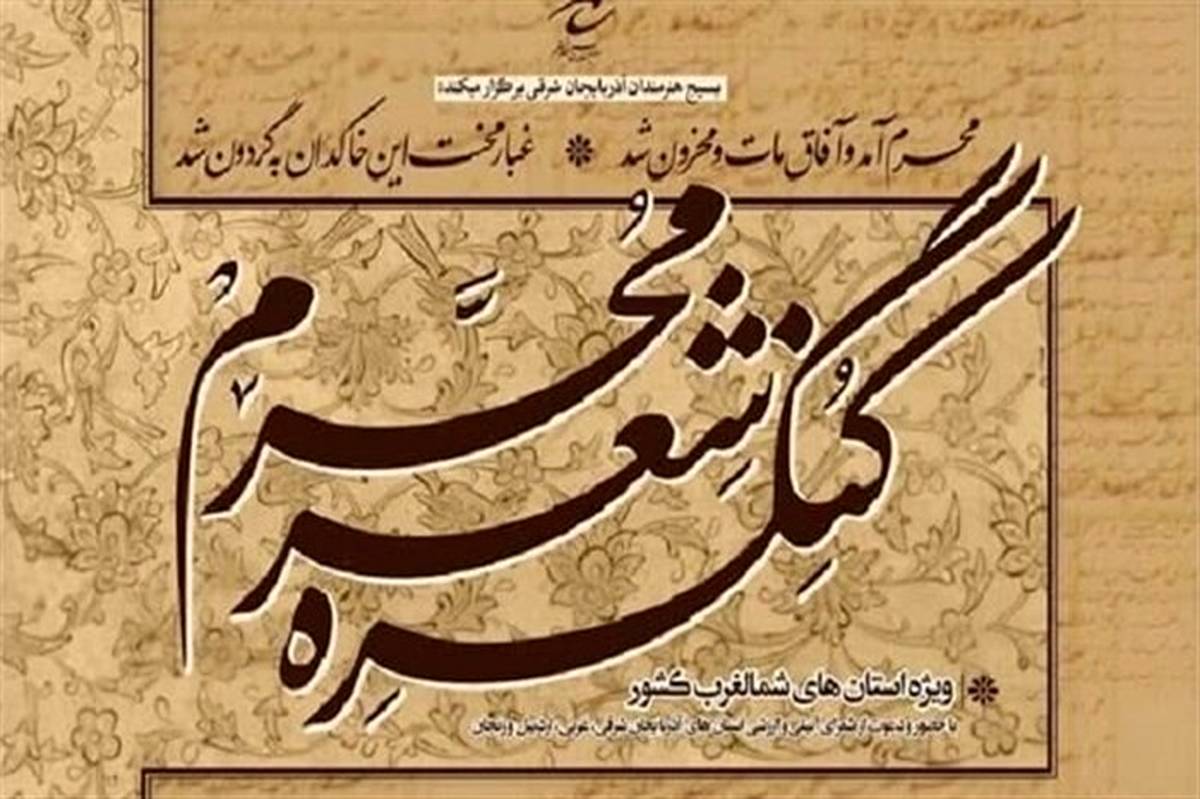 بسیج هنرمندان آذربایجان شرقی برگزار میکند:
محرم آمد و آفاق مات و محزون شد غبار محنت این خاکدان به گردون شد
کنگره
شعر
مُحرّم
ویژه استان های شمالغرب کشور
با حضور و دعوت از شعرای آیینی و ارزشی استان های آذربایجان شرقی، غربی، اردبیل و زنجان